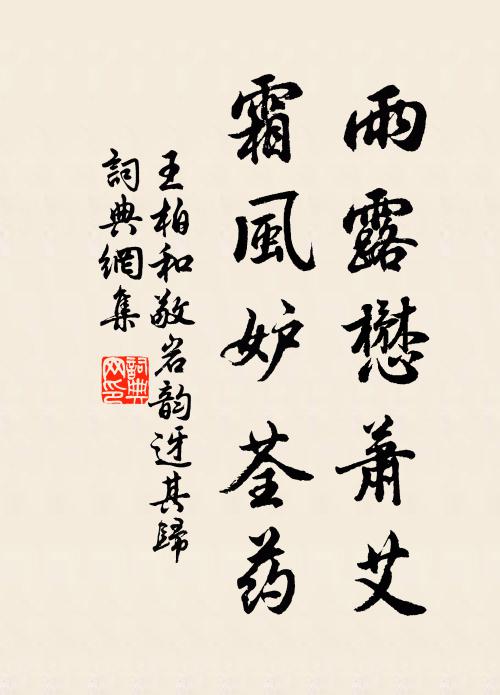 雨露懋蕭艾
霜風妒荃药
王柏和敬岩韵迓其歸
詞典網集
詞典网印